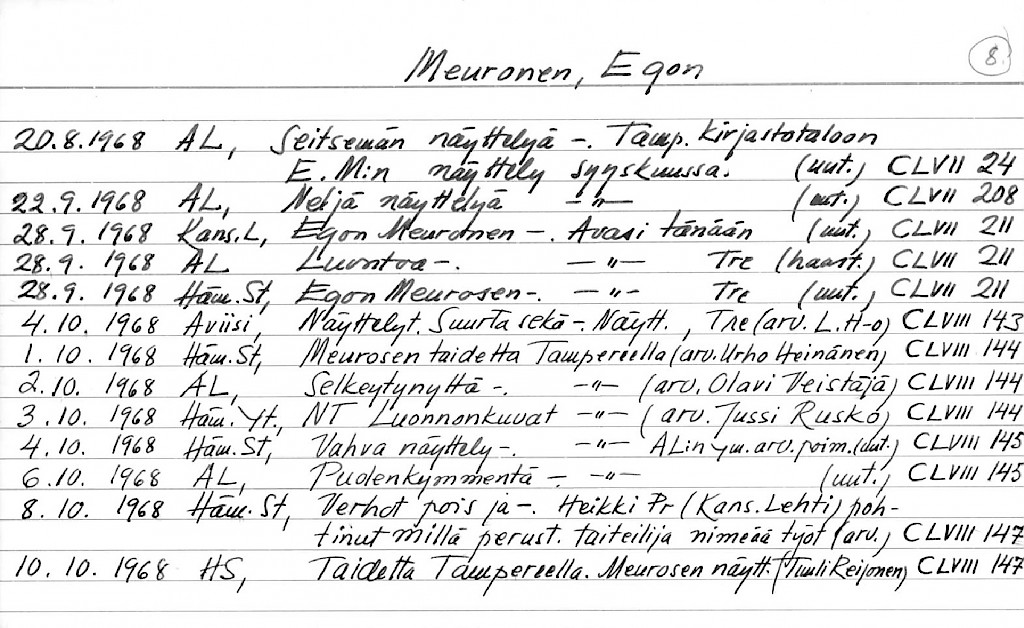 Meuronen, Egon 8.
20.8.1968 AL, Seitsemän näyttelyä -. Tamp. Kirjastotaloon
E.M:n näyttely syyskuussa. (uut.) CLVII 24
22.9.1968 AL, Neljä näyttelyä —"— (uut.) CLVII 208
28.9.1968 Kans.L, Egon Meuronen -. Avasi tänään (uut.) CLVII 211
28.9.1968 AL Luontoa -. —"— Tre (haast.) CLVII 211
28.9.1968 Häm.St, Egon Meurosen -. —"— Tre (uut.) CLVII 211
4.10.1968 Aviisi, Näyttelyt. Suurta sekä -. Näytt., Tre (arv. L.H-o) CLVIII 143
1.10.1968 Häm.St, Meurosen taidetta Tampereella (arv. Urho Heinänen) CLVIII 144
2.10.1968 AL, Selkeytynyttä -. —"— (arv. Olavi Veistäjä) CLVIII 144
3.10.1968 Häm.Yt., NT Luonnonkuvat —"— (arv. Jussi Rusko) CLVIII 144
4.10.1968 Häm.St, Vahva näyttely -. —"— AL:n ym. arv. poim. (uut.) CLVIII 145
6.10.1968 AL, Puolenkymmentä -. —"— (uut.) CLVIII 145
8.10.1968 Häm.St, Verhot pois ja -. Heikki Pr (Kans. Lehti) poh-
tinut millä perust. taiteilija nimeää työt (arv.) CLVIII 147
10.10.1968 HS, Taidetta Tampereella. Meurosen näytt. (Tuuli Reijonen) CLVIII 147